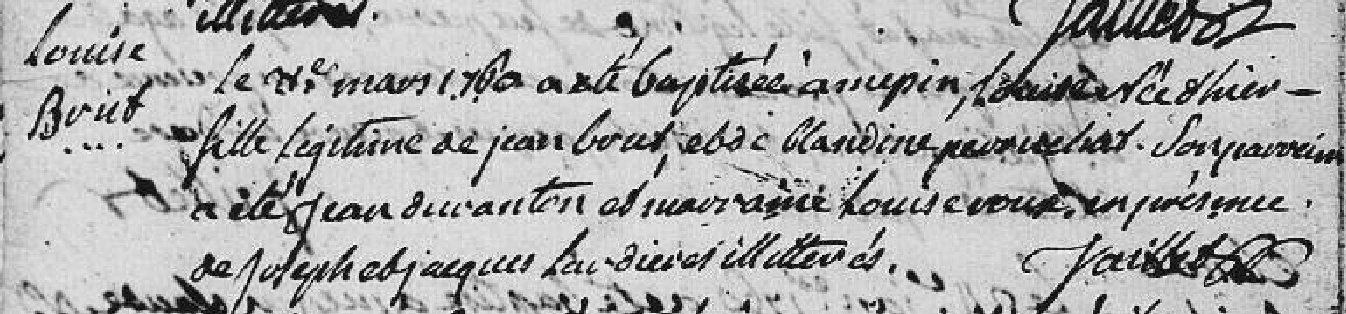 illitterés. Jaillet
Louise
Brut
le 21e mars 1760 a eté baptisée a mepin, Louise née d'hier
fille légitime de jean brut, et de blandine perrachat. Son parrein
a été jean duranton et marraine Louise roux. en présence
de joseph et jacques illitterés. Jaillet